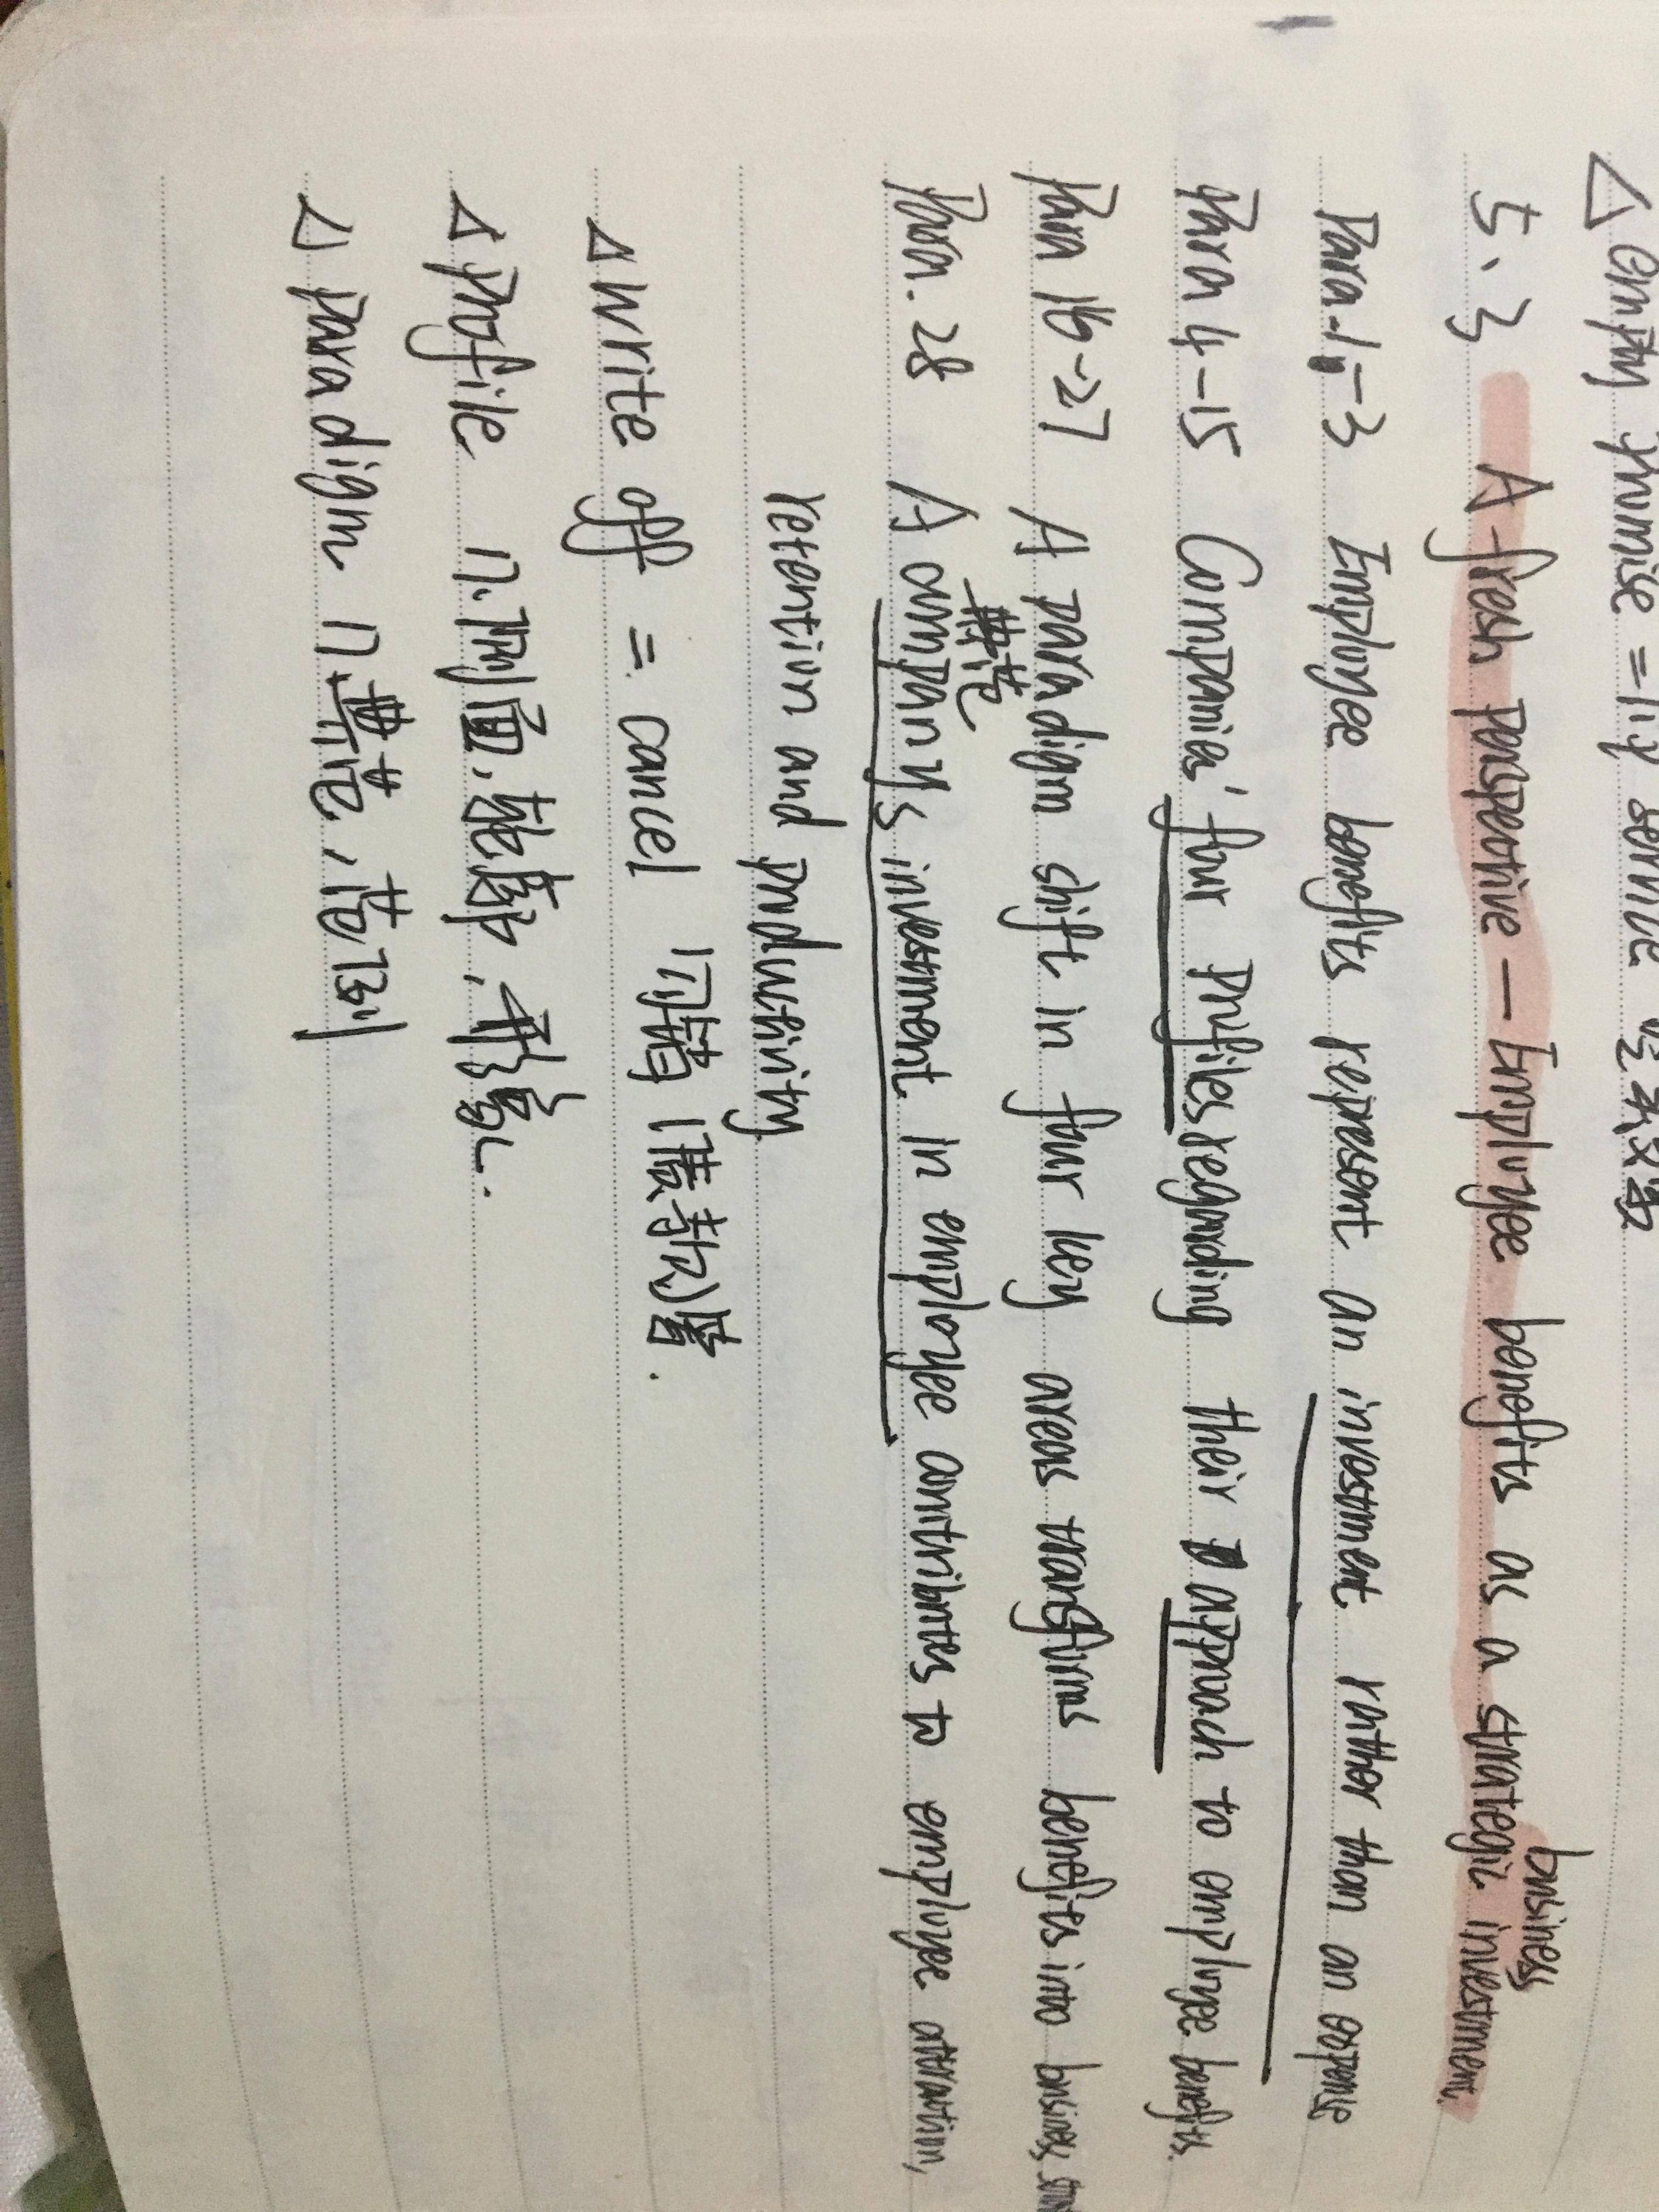 △ empty promise = lip service 空头支票
5.3 A fresh perspective — Employee benefits as a strategic business investment.
Para.1-3 Employee benefits represent an investment rather than an expense
Para 4-15 Companies' four profiles regarding their approach to employee benefits.
Para 16-27 A paradigm shift in four key areas transforms benefits into business
范式
Para. 28 A company's investment in employee contributes to employee attraction,
retention and productivity
△ write off = cancel
△ profile n. 侧面,
△ paradigm n. 典范, 范例